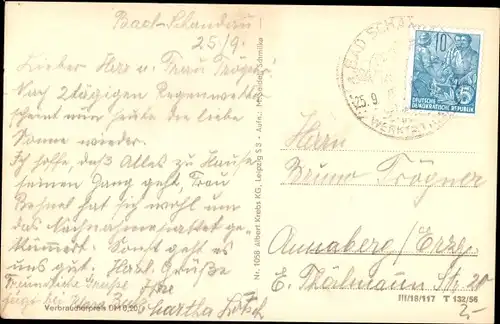 Bad-Schandau
25/9.
Lieber Herr u. Frau Trögner!
Nach 2tägigen Regenwetter
scheint nun heute die liebe
Sonne wieder.
Ich hoffe, das Alles zu Hause
seinen Gang geht, Frau
hat sich wohl um
das Nachnahmepaket ge-
kümmert. Sonst geht es
uns gut. Herzl. Grüße
Freundliche Grüße Ihre
fügt bei Martha
Verbraucherpreis DM 0,20
Nr. 1058 Albert Krebs KG, Leipzig S 3 • Aufn.: Schmilka
BAD SCHANDAU
10
5
DEUTSCHE
DEMOKRATISCHE REPUBLIK
Herrn
Bruno Trögner
Annaberg/Erzg.
E. Thälmann Str. 20
III/18/117 T 132/56
2,-